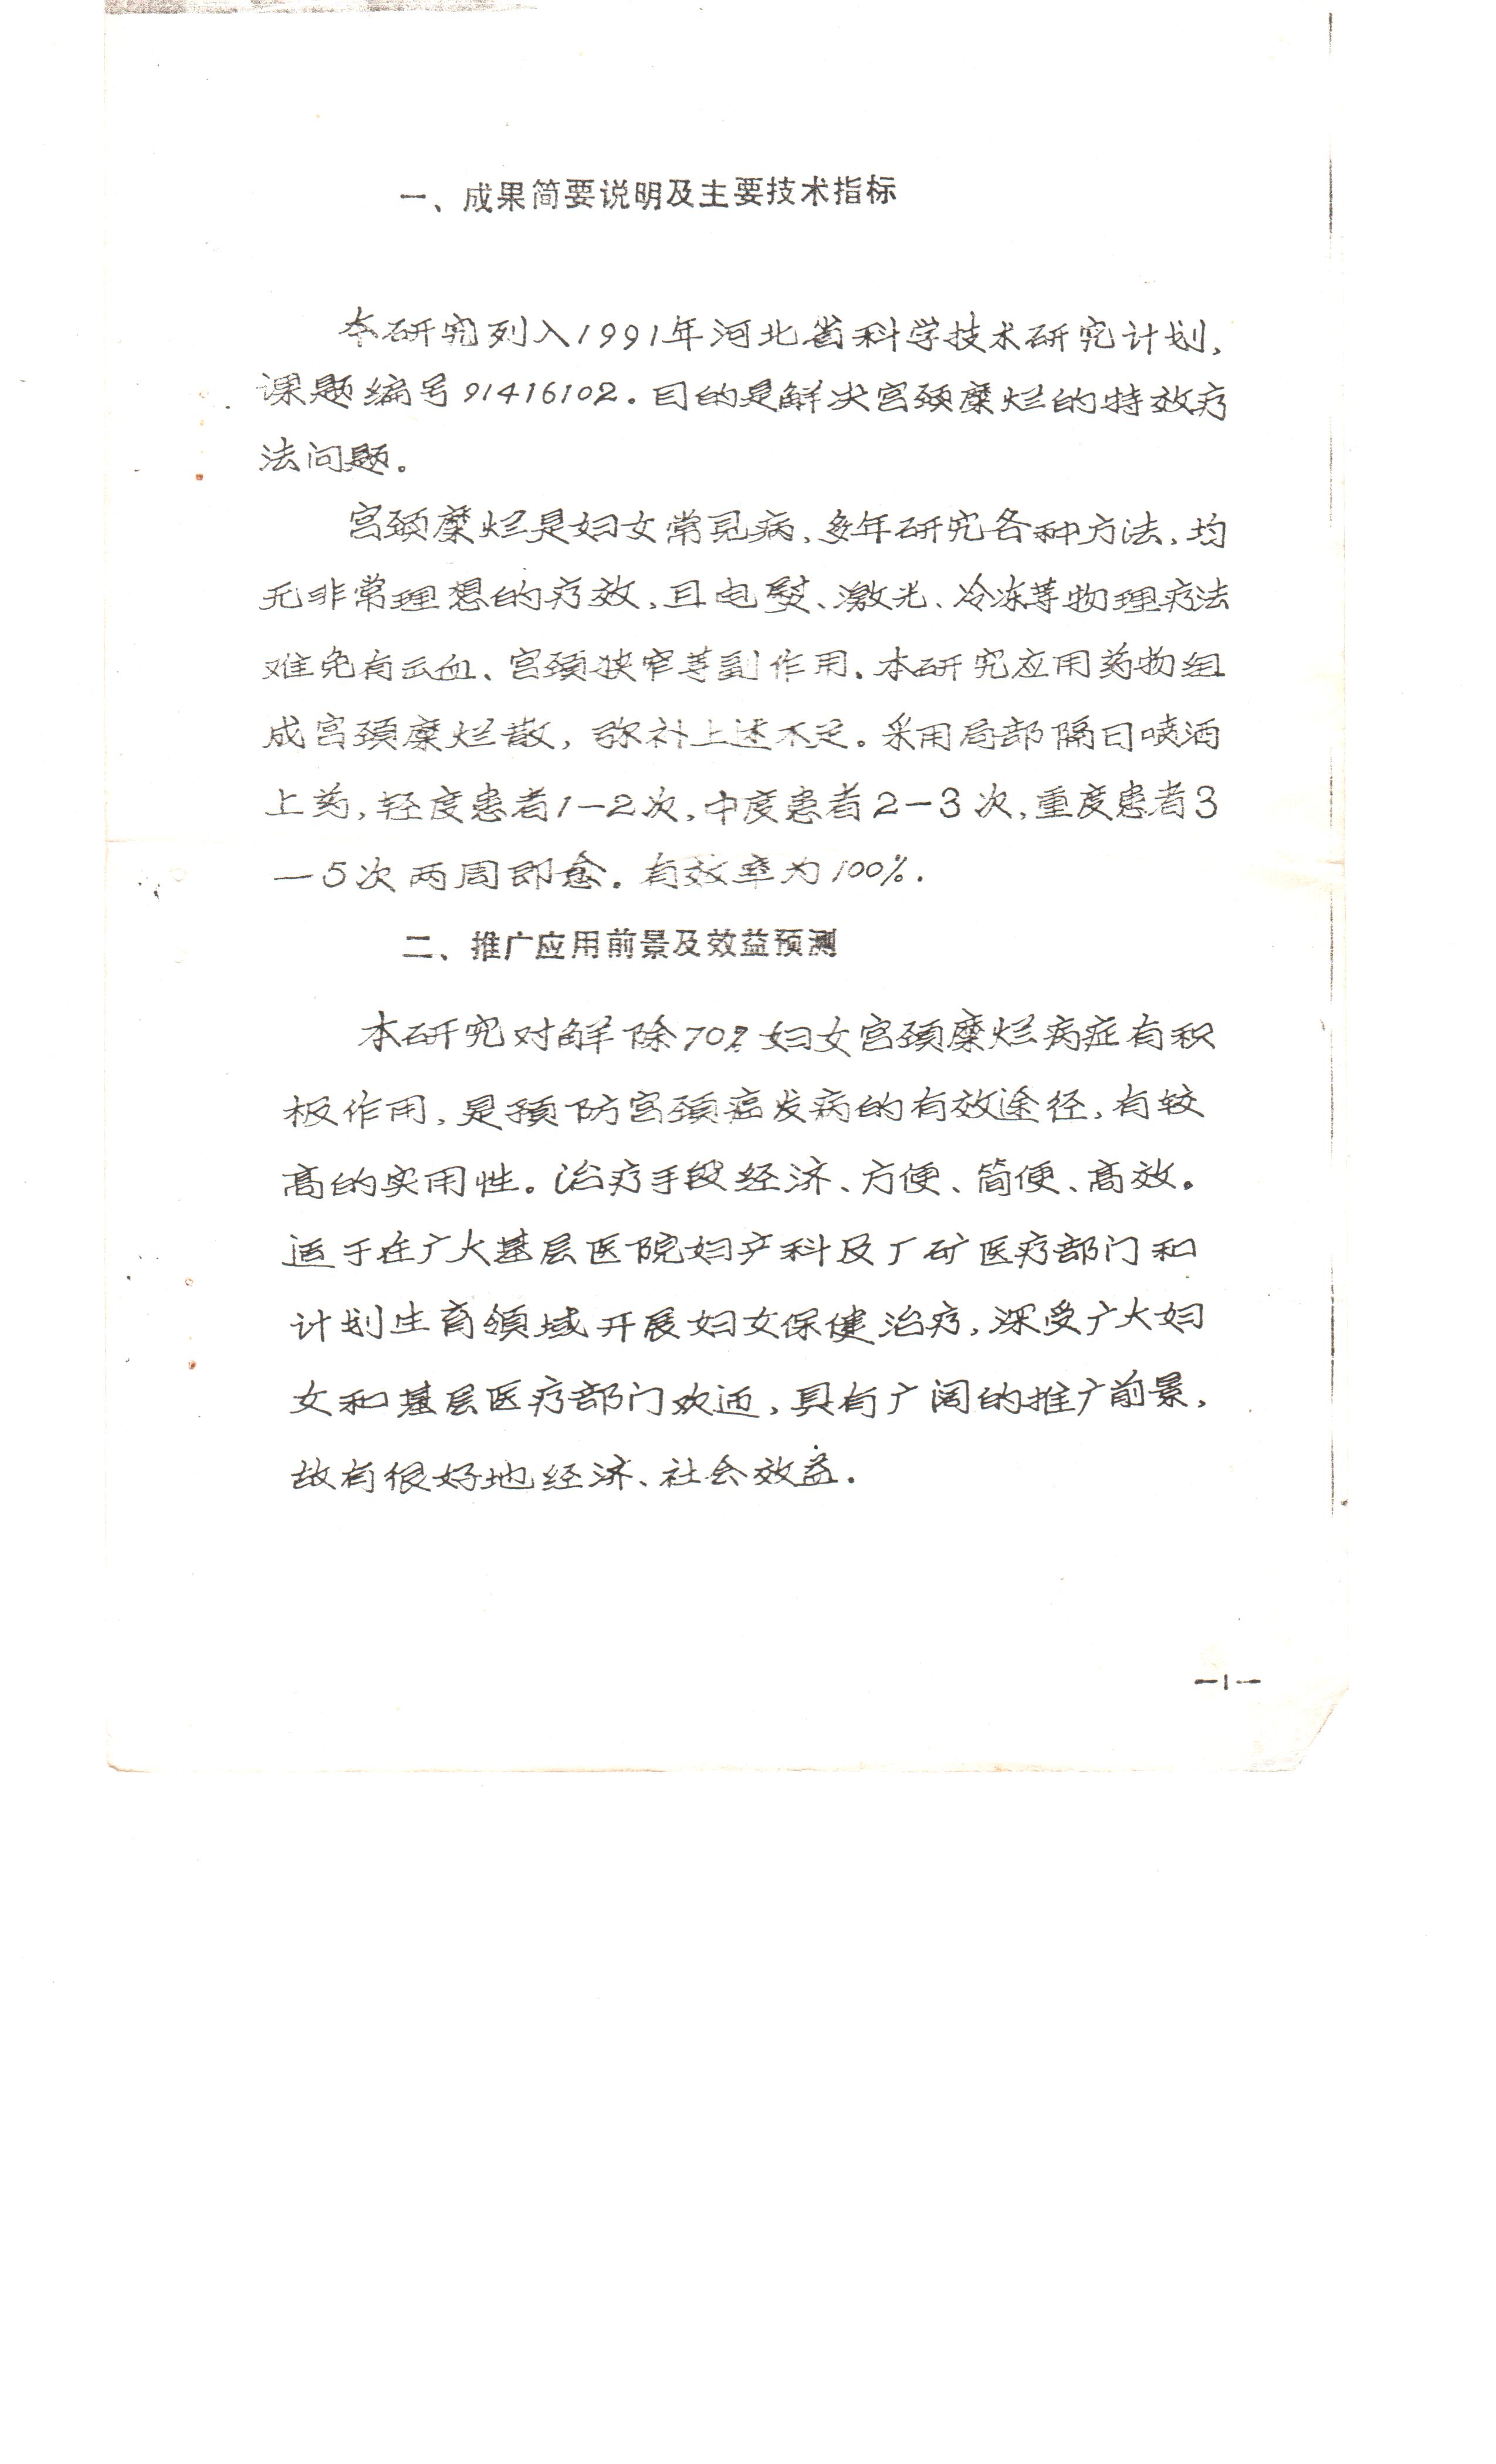 一、成果简要说明及主要技术指标
本研究列入1991年河北省科学技术研究计划,
课题编号91416102.目的是解决宫颈糜烂的特效疗
法问题。
宫颈糜烂是妇女常见病,多年研究各种方法,均
无非常理想的疗效,且电熨、激光、冷冻等物理疗法
难免有云血、宫颈狭窄等副作用.本研究应用药物组
成宫颈糜烂散,弥补上述不足。采用局部隔日喷洒
上药,轻度患者1—2次,中度患者2—3次,重度患者3
—5次两周即愈.有效率为100%.
二、推广应用前景及效益预测
本研究对解除70%妇女宫颈糜烂病症有积
极作用,是预防宫颈癌发病的有效途径,有较
高的实用性。治疗手段经济、方便、简便、高效。
适于在广大基层医院妇产科及厂矿医疗部门和
计划生育领域开展妇女保健治疗,深受广大妇
女和基层医疗部门欢迎,具有广阔的推广前景,
故有很好地经济、社会效益.
—1—